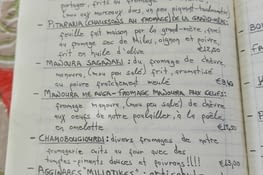 partager, frits au fromage
(aux morceaux dur, un peu piquant-tombante)
- PITARAKIA (CHAUSSONS AU FROMAGE) DE LA GRAND-MÈRE:
feuille fait maison par la grand-mère, avec
au fromage sec de Milos, oignon et poivre,
frit en huile d'olive. €12,50
- MANOURA SAGANAKI: du fromage de chèvre,
manoura, (mou pas salé) frit, aromatisé
au poivre fraîchement moulé €9,60
- MANOURA ME AVGA - FROMAGE MANOURA AUX ŒUFS:
fromage manoura, (mou peu salé) de chèvre,
aux œufs de notre poulailler, à la poêle,
en omelette €12,50
- CHAMOBOUGIOURDI: divers fromages de notre
fromagerie cuits au four avec des
tomates-piments douces et poivrons!!!! €13,00